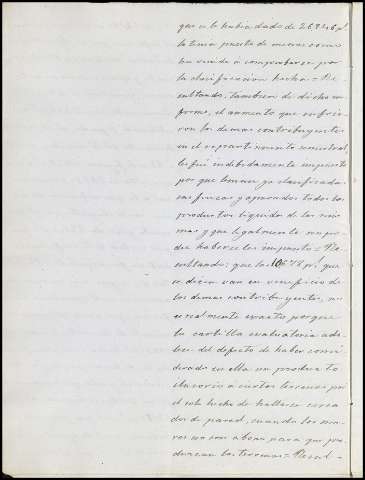 que se le habia dado de 26846 pˢ
la tenia puesta de menos como
ha venido a comprobarse por
la clasificacion hecha = Re
sultando: tambien de dicho in
forme, el aumento que sufrie
ron los demas contribuyentes
en el repartimiento semestral
les fué indebidamente impuesto
por que tenian ya clasificadas
sus fincas y apurados todos los
productos liquidos de las mis
mas y que legalmente no po
dia haberse les impuesto = Re
sultando: que los pˢ que
se dicen van en beneficio de
los demas contribuyentes, no
es realmente exacto porque
la cartilla evaluatoria ado
lece del defecto de haber consi
derado en ella un producto
ilusorio a ciertos terrenos por
el solo hecho de hallarse cerca
dos de pared, cuando los mu
ros no son abono para que pro
duzcan los terrenos = Resul-